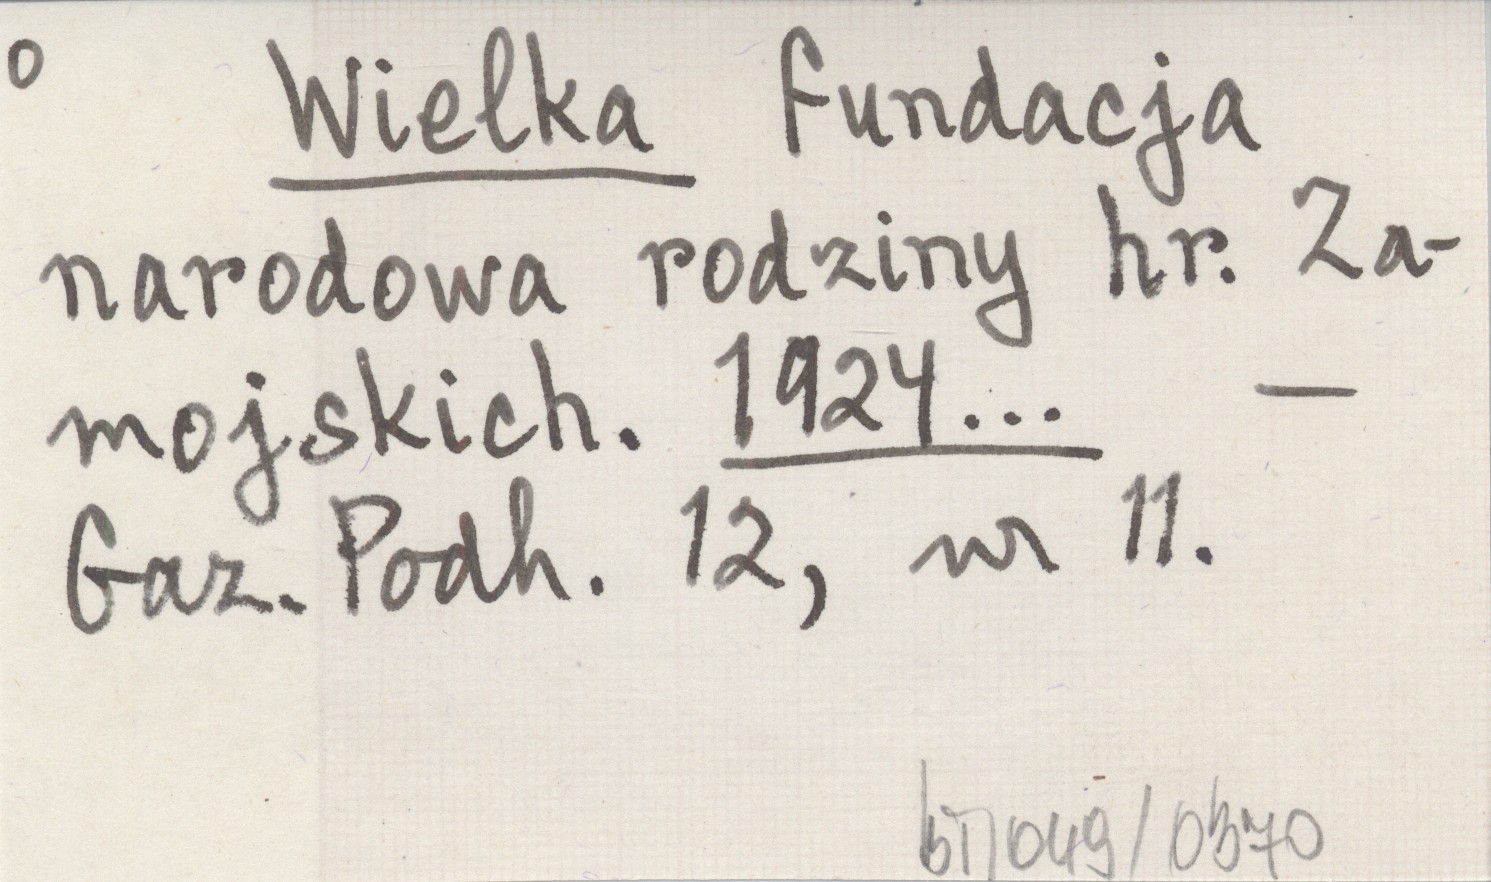 o Wielka fundacja
narodowa rodziny hr. Za-
mojskich. 1924... —
Gaz. Podh. 12, nr 11.